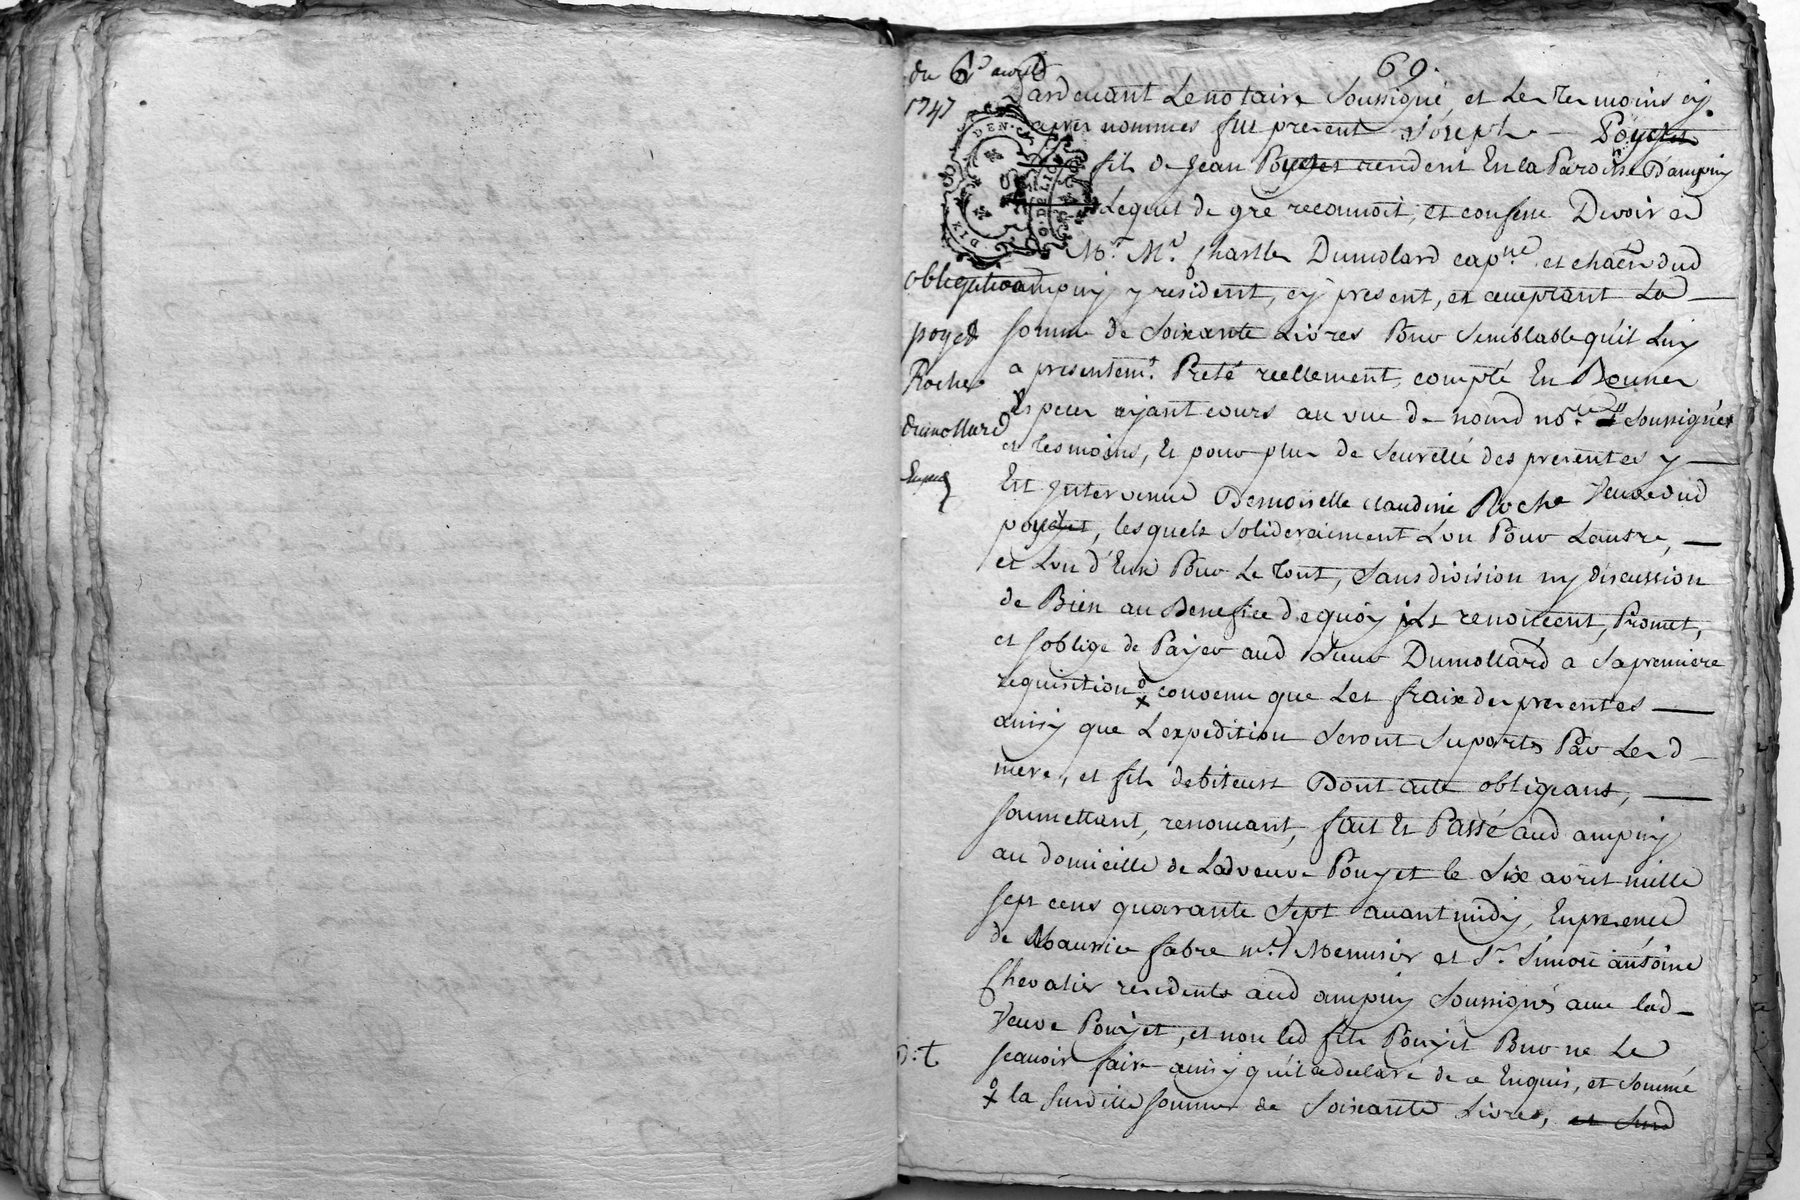 69.
du 6 avril
1747
obligation
poyet
Roche
dumollard
Expéd
Pardevant Le notaire Soussigné, et Les temoins cy
apres nommés fut present Joseph Pouyet
fils de Jean Pouyet resident En la Paroisse D'ampuy
Lequel de gré reconnoit, et confesse Devoir a
Mr. Me. Charlles Dumolard capne. et chaen. dud
ampuy y resident, cy present, et acceptant La
somme de Soixante Livres Pour Semblable qu'il Luy
a presentemt. Preté reellement, compté En Bonnes
Especes ayant cours au vue de nousd nore. Soussigné
et tesmoins, Et pour plus de Seuretté des presentes y
Est Intervenue Demoiselle claudine Roche Veuve dud
pouyet, lesquels Soliderairement Lun Pour Lautre,
et Lun d'Eux Pour Le Tout, Sans division ny discussion
de Bien au Benefice de quoy ils renoncent, Promet,
et soblige de Payer aud Sieur Dumollard a Sa premiere
requisition convenu que Les fraix des presentes
ainsy que L'expedition Seront Suportés Par Lesd
mere, et fils debiteurs Dont acte obligeans,
soumettant, renoncant, fait Et Passé aud ampuy
au domicille de Ladveuve Pouyet le Six avril mille
sept cens quarante Sept avant midy, En presence
de Maurice fabre me. Menusier et Sr. Simon antoine
Chevalier residents aud ampuy Soussignés avec lad
Veuve Pouyet, et non led fils Pouyet Pour ne Le
scavoir faire ainsy qu'il a declaré de ce Enquis, et Sommé
la Susditte somme de Soixante Livres, et Sus